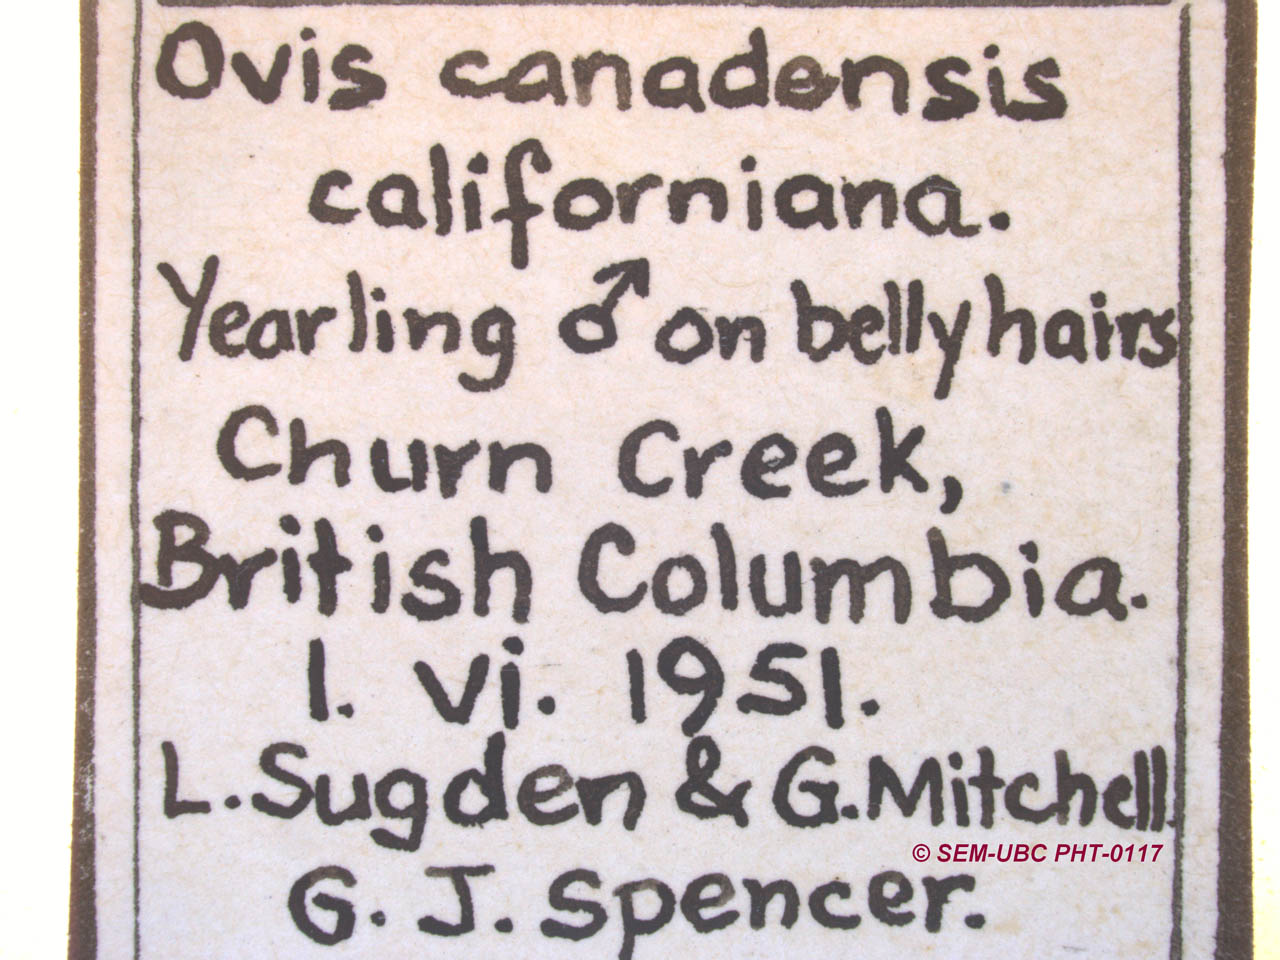 Ovis canadensis
californiana.
Yearling ♂ on belly hairs
Churn Creek,
British Columbia.
1. vi. 1951.
L. Sugden & G. Mitchell.
© SEM-UBC PHT-0117
G. J. Spencer.